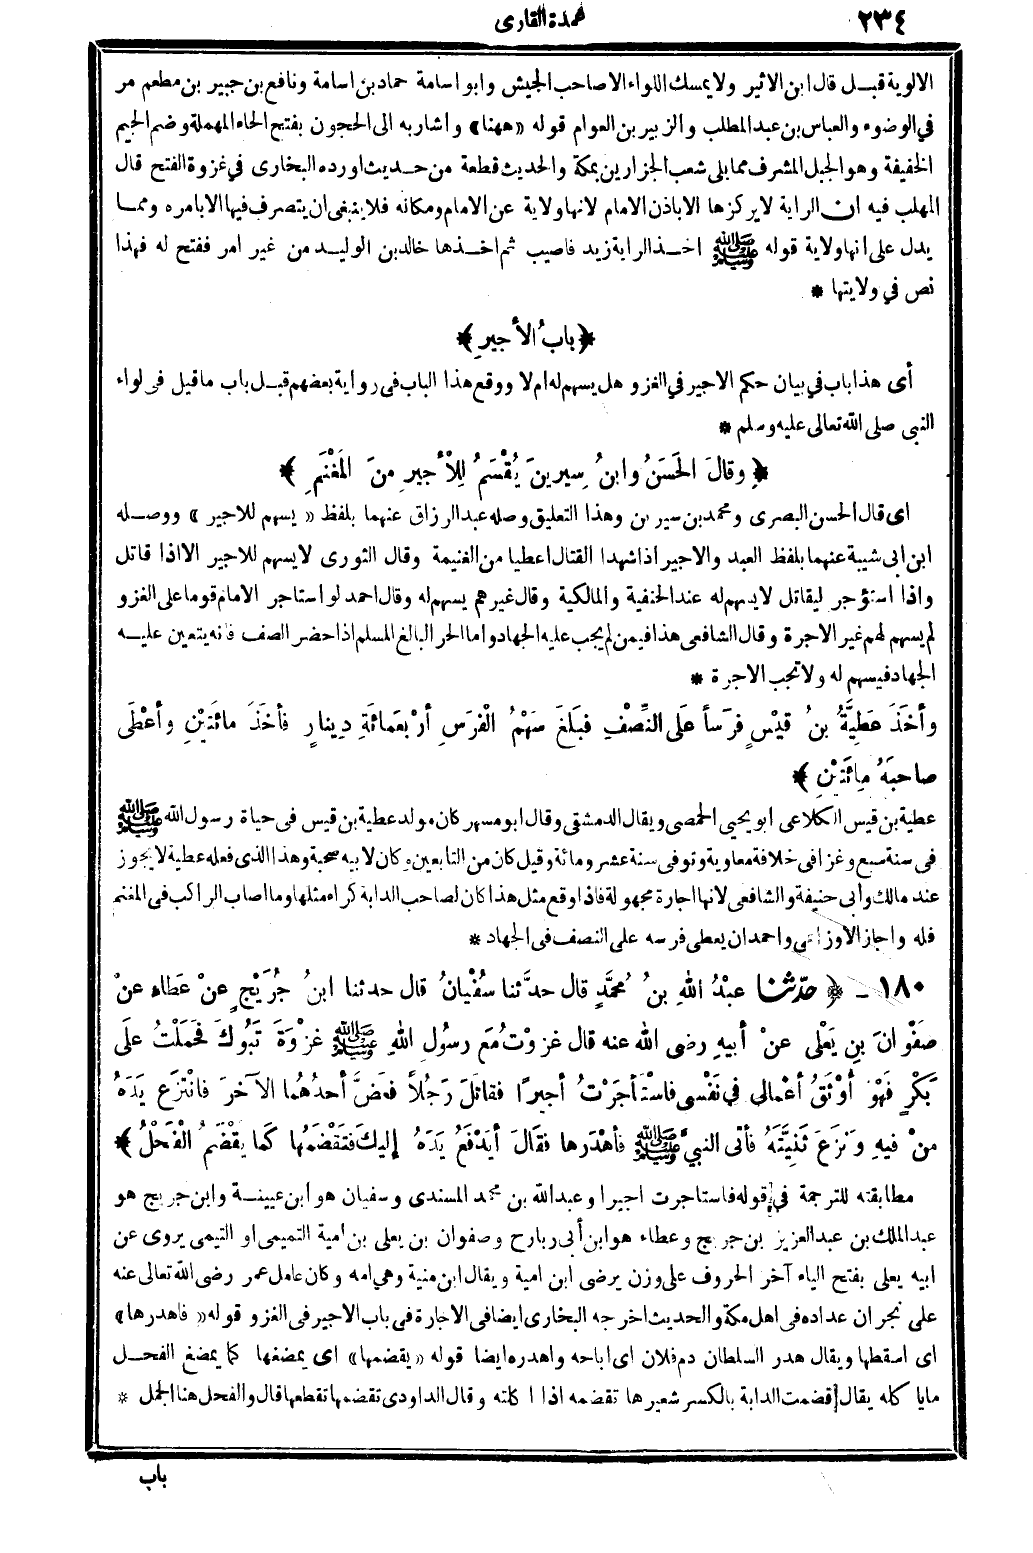 ٢٣٤
عمدة القارى
الالوية قبل قال ابن الاثير ولا يمسك اللواء الا صاحب الجيش وابو اسامة حماد بن اسامة ونافع بن جبير بن مطعم مر
في الوضوء والعباس بن عبد المطلب والزبير بن العوام قوله «ههنا» واشار به الى الحجون بفتح الحاء المهملة وضم الجيم
الخفيفة وهو الجبل المشرف مما يلى شعب الجزارين بمكة والحديث قطعة من حديث اورده البخارى في غزوة الفتح قال
المهلب فيه ان الراية لا يركزها الا باذن الامام لانها ولاية عن الامام ومكانه فلا ينبغى ان يتصرف فيها الا بامره ومما
يدل على انها ولاية قوله ﷺ اخذ الراية زيد فاصيب ثم اخذها خالد بن الوليد من غير امر ففتح له فهذا
نص في ولايتها *
﴿باب ُ الأجيرِ﴾
أى هذا باب في بيان حكم الاجير في الغزو هل يسهم له ام لا ووقع هذا الباب فى رواية بعضهم قبل باب ما قيل فى لواء
النبي صلى الله تعالى عليه وسلم *
﴿وقالَ الحَسَنُ وابنُ سِيرينَ يُقْسَمُ لِلْأجيرِ مِنَ المَغْنَمِ﴾
اى قال الحسن البصرى ومحمد بن سيرين وهذا التعليق وصله عبد الرزاق عنهما بلفظ «يسهم للاجير» ووصله
ابن ابى شيبة عنهما بلفظ العبد والاجير اذا شهدا القتال اعطيا من الغنيمة وقال الثورى لا يسهم للاجير الا اذا قاتل
واذا استؤجر ليقاتل لا يسهم له عند الحنفية والمالكية وقال غيرهم يسهم له وقال احمد لو استاجر الامام قوما على الغزو
لم يسهم لهم غير الاجرة وقال الشافعى هذا فيمن لم يجب عليه الجهاد واما الحر البالغ المسلم اذا حضر الصف فانه يتعين عليه
الجهاد فيسهم له ولا تجب الاجرة *
وأخَذَ عَطِيَّةُ بنُ قَيْسٍ فرَساً عَلَى النِّصْفِ فبَلَغَ سَهْمُ الْفَرَسِ أرْبَعَمائَةِ دِينارٍ فأخَذَ مائَتَيْنِ وأعْطَى
صاحبَهُ مِائَتَيْنِ﴾
عطية بن قيس الكلاعى ابو يحيى الحمصى ويقال الدمشقى وقال ابو مسهر كان مولد عطية بن قيس فى حياة رسول الله ﷺ
فى سنة سبع وغزا فى خلافة معاوية وتوفى سنة عشر ومائة وقيل كان من التابعين وكان لابيه صحبة وهذا الذى فعله عطية لا يجوز
عند مالك وأبى حنيفة والشافعى لانها اجارة مجهولة فاذا وقع مثل هذا كان لصاحب الدابة كراء مثلها وما اصاب الراكب فى المغنم
فله واجاز الاوزاعى واحمد ان يعطى فرسه على النصف فى الجهاد *
١٨٠ ـ ﴿حَدَّثَنَا عبْدُ اللهِ بنُ مُحمَّدٍ قال حدَّثنا سُفْيانُ قال حدثنا ابنُ جُرَيْجٍ عنْ عَطاءٍ عنْ
صَفْوانَ بنِ يَعْلَى عنْ أبيهِ رضى الله عنه قال غزوْتُ مَعَ رسولِ اللهِ ﷺ غزْوةَ تَبُوكَ فحَمَلْتُ علَى
بَكْرٍ فَهْوَ أوْثَقُ أعْمالِى فِي نَفْسِى فاسْتَأجَرْتُ أجيرًا فقاتَلَ رَجُلاً فعَضَّ أحدُهُما الآخَرَ فانْتزَعَ يدَهُ
منْ فيهِ ونزَعَ ثَنِيَّتَهُ فأتى النبيَّ ﷺ فأهْدَرها فقالَ أيَدْفَعُ يدَهُ إليكَ فتَقْضَمُها كَما يقْضَمُ الْفَحْلُ﴾
مطابقته للترجمة في قوله فاستاجرت اجيرا وعبد الله بن محمد المسندى وسفيان هو ابن عيينة وابن جريج هو
عبد الملك بن عبد العزيز بن جريج وعطاء هو ابن أبى رباح وصفوان بن يعلى بن امية التميمى او التيمى يروى عن
ابيه يعلى بفتح الياء آخر الحروف على وزن يرضى ابن امية ويقال ابن منية وهي امه وكان عامل عمر رضى الله تعالى عنه
على نجران عداده فى اهل مكة والحديث اخرجه البخارى ايضا فى الاجارة فى باب الاجير فى الغزو قوله «فاهدرها»
اى اسقطها ويقال هدر السلطان دم فلان اى اباحه واهدره ايضا قوله «يقضمها» اى يمضغها كما يمضغ الفحل
ما ياكله يقال قضمت الدابة بالكسر شعيرها تقضمه اذا اكلته وقال الداودى تقضمها تقطعها قال والفحل هنا الجمل *
باب